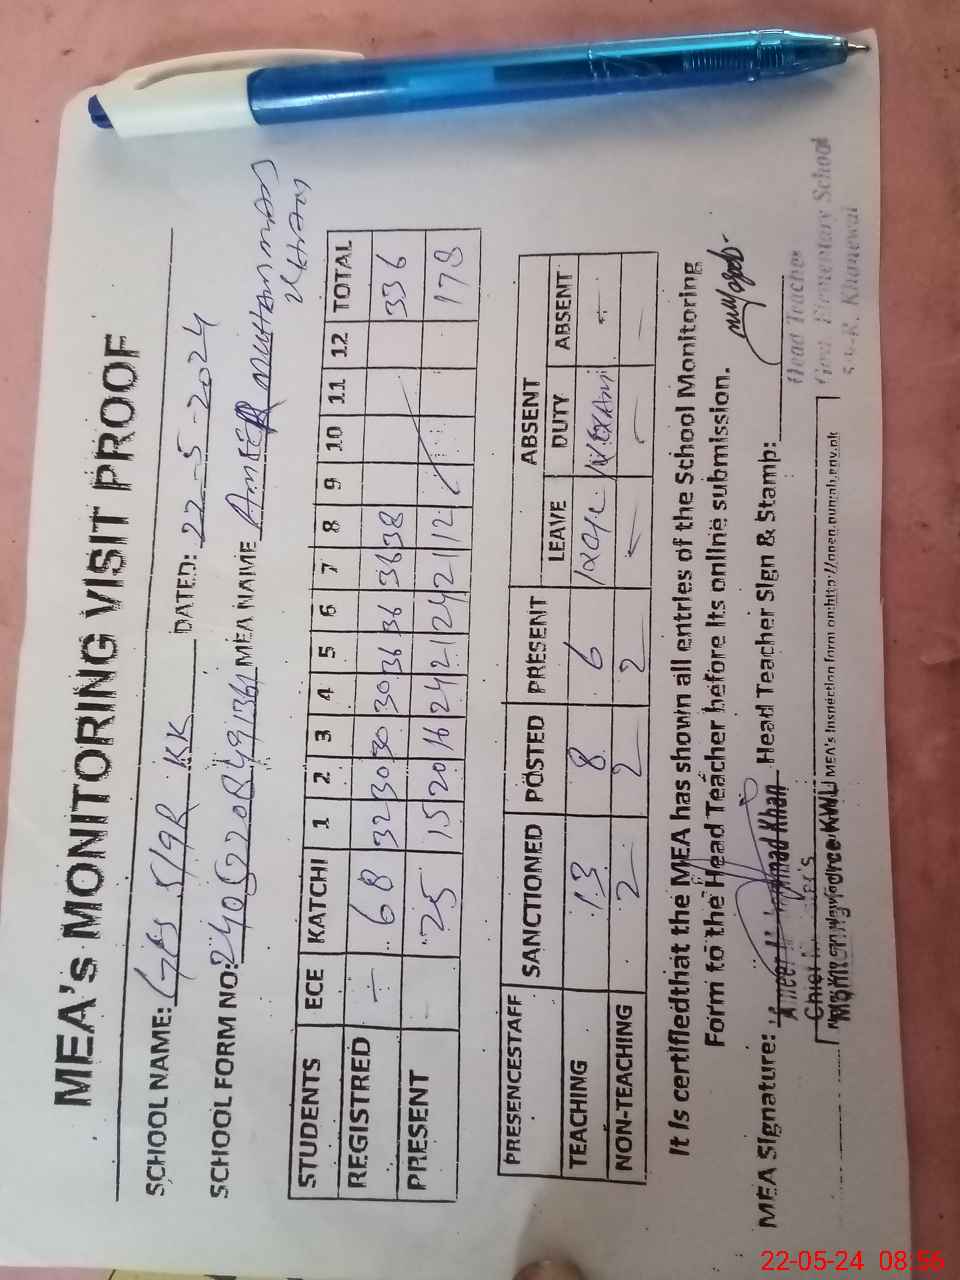 MEA's MONITORING VISIT PROOF
SCHOOL NAME: 5/9R KK DATED: 22-5-2024
SCHOOL FORM NO: MEA NAME AMEER MUHAMMAD
KHAN
STUDENTS ECE KATCHI 1 2 3 4 5 6 7 8 9 10 11 12 TOTAL
REGISTRED - 68 32 30 30 30 36 36 36 38 336
PRESENT - 25 15 20 16 24 21 24 21 12 178
PRESENCESTAFF SANCTIONED POSTED PRESENT ABSENT
LEAVE DUTY ABSENT
TEACHING 13 8 6 -
NON-TEACHING 2 2 2 - - -
It is certifiedthat the MEA has shown all entries of the School Monitoring
Form to the Head Teacher before its online submission.
MEA Signature: Head Teacher Sign & Stamp:
Ameer Khan
Head Teacher
Govt. Elementary School
Khanewal
MEA's Inspection form on:http://open.punjab.gov.pk
22-05-24 08:56